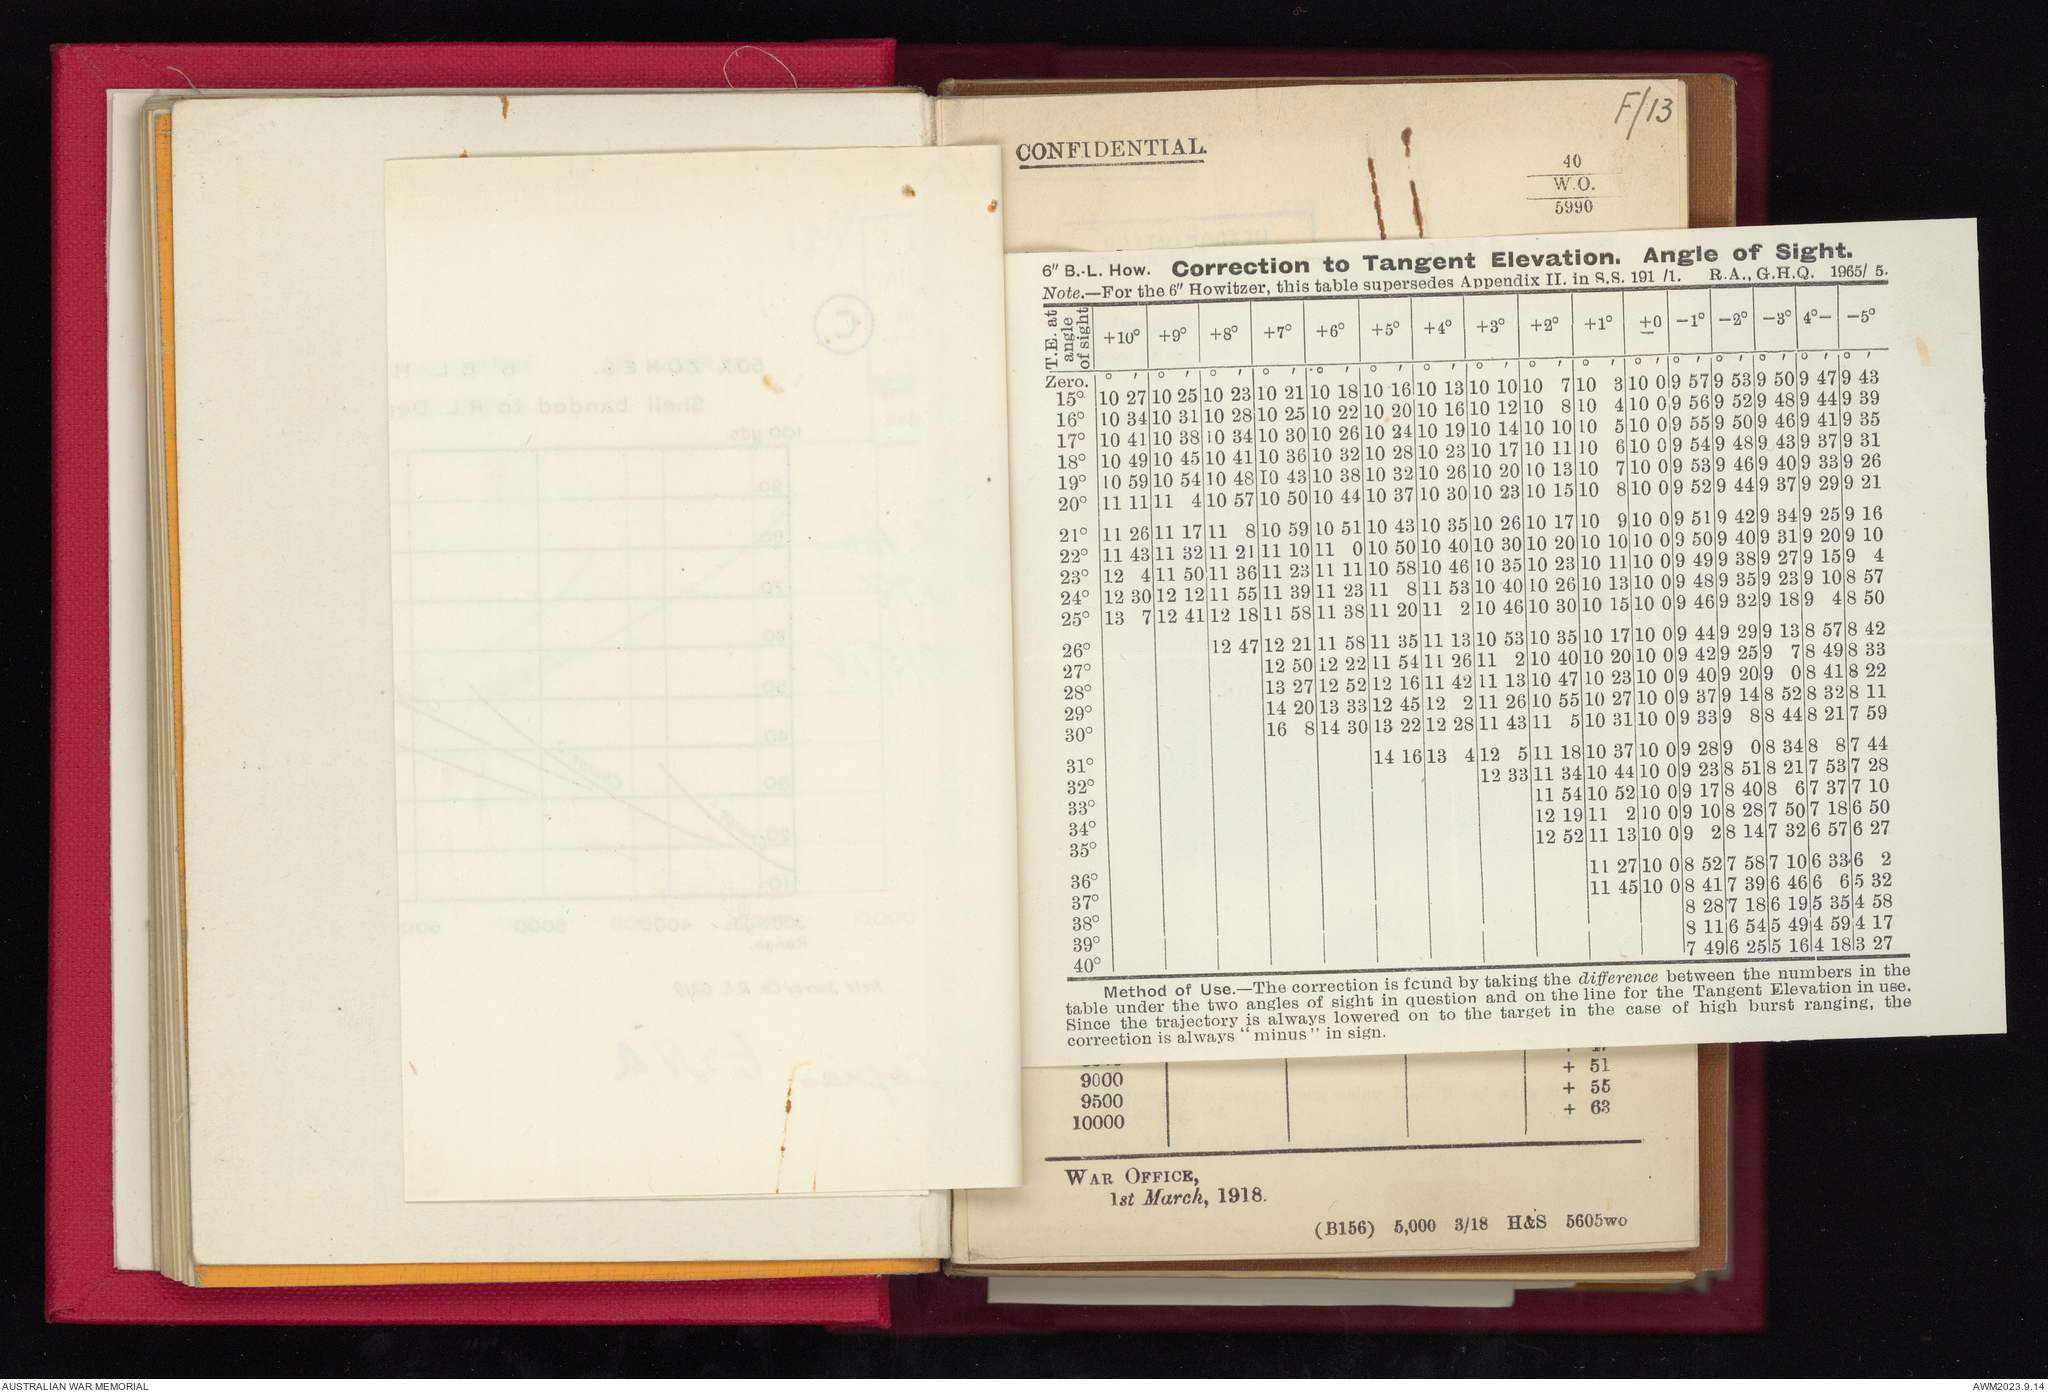 F/13
CONFIDENTIAL.
40
W.O.
5990
6" B.-L. How. Correction to Tangent Elevation. Angle of Sight.
Note.—For the 6" Howitzer, this table supersedes Appendix II. in S.S. 191 /1. R.A., G.H.Q. 1965/ 5.
T.E. at angle of sight +10° +9° +8° +7° +6° +5° +4° +3° +2° +1° ±0 −1° −2° −3° 4°− −5°
Zero. ° ′ ° ′ ° ′ ° ′ ° ′ ° ′ ° ′ ° ′ ° ′ ° ′ ° ′ ° ′ ° ′ ° ′ ° ′ ° ′
15° 10 27 10 25 10 23 10 21 10 18 10 16 10 13 10 10 10 7 10 3 10 0 9 57 9 53 9 50 9 47 9 43
16° 10 34 10 31 10 28 10 25 10 22 10 20 10 16 10 12 10 8 10 4 10 0 9 56 9 52 9 48 9 44 9 39
17° 10 41 10 38 10 34 10 30 10 26 10 24 10 19 10 14 10 10 10 5 10 0 9 55 9 50 9 46 9 41 9 35
18° 10 49 10 45 10 41 10 36 10 32 10 28 10 23 10 17 10 11 10 6 10 0 9 54 9 48 9 43 9 37 9 31
19° 10 59 10 54 10 48 10 43 10 38 10 32 10 26 10 20 10 13 10 7 10 0 9 53 9 46 9 40 9 33 9 26
20° 11 11 11 4 10 57 10 50 10 44 10 37 10 30 10 23 10 15 10 8 10 0 9 52 9 44 9 37 9 29 9 21
21° 11 26 11 17 11 8 10 59 10 51 10 43 10 35 10 26 10 17 10 9 10 0 9 51 9 42 9 34 9 25 9 16
22° 11 43 11 32 11 21 11 10 11 0 10 50 10 40 10 30 10 20 10 10 10 0 9 50 9 40 9 31 9 20 9 10
23° 12 4 11 50 11 36 11 23 11 11 10 58 10 46 10 35 10 23 10 11 10 0 9 49 9 38 9 27 9 15 9 4
24° 12 30 12 12 11 55 11 39 11 23 11 8 11 53 10 40 10 26 10 13 10 0 9 48 9 35 9 23 9 10 8 57
25° 13 7 12 41 12 18 11 58 11 38 11 20 11 2 10 46 10 30 10 15 10 0 9 46 9 32 9 18 9 4 8 50
26° 12 47 12 21 11 58 11 35 11 13 10 53 10 35 10 17 10 0 9 44 9 29 9 13 8 57 8 42
27° 12 50 12 22 11 54 11 26 11 2 10 40 10 20 10 0 9 42 9 25 9 7 8 49 8 33
28° 13 27 12 52 12 16 11 42 11 13 10 47 10 23 10 0 9 40 9 20 9 0 8 41 8 22
29° 14 20 13 33 12 45 12 2 11 26 10 55 10 27 10 0 9 37 9 14 8 52 8 32 8 11
30° 16 8 14 30 13 22 12 28 11 43 11 5 10 31 10 0 9 33 9 8 8 44 8 21 7 59
31° 14 16 13 4 12 5 11 18 10 37 10 0 9 28 9 0 8 34 8 8 7 44
32° 12 33 11 34 10 44 10 0 9 23 8 51 8 21 7 53 7 28
33° 11 54 10 52 10 0 9 17 8 40 8 6 7 37 7 10
34° 12 19 11 2 10 0 9 10 8 28 7 50 7 18 6 50
35° 12 52 11 13 10 0 9 2 8 14 7 32 6 57 6 27
36° 11 27 10 0 8 52 7 58 7 10 6 33 6 2
37° 11 45 10 0 8 41 7 39 6 46 6 6 5 32
38° 8 28 7 18 6 19 5 35 4 58
39° 8 11 6 54 5 49 4 59 4 17
40° 7 49 6 25 5 16 4 18 3 27
Method of Use.—The correction is found by taking the difference between the numbers in the
table under the two angles of sight in question and on the line for the Tangent Elevation in use.
Since the trajectory is always lowered on to the target in the case of high burst ranging, the
correction is always "minus" in sign.
+ 51
9000 + 55
9500 + 63
10000
War Office,
1st March, 1918.
(B156) 5,000 3/18 H&S 5605wo
AUSTRALIAN WAR MEMORIAL
AWM2023.9.14